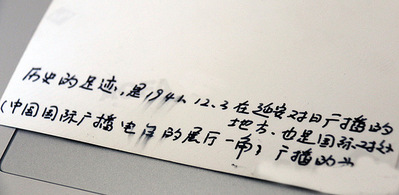 历史的足迹,是1941.12.3在延安对日广播的
地方.也是国际对
(中国国际广播电台的展厅一角) 广播的